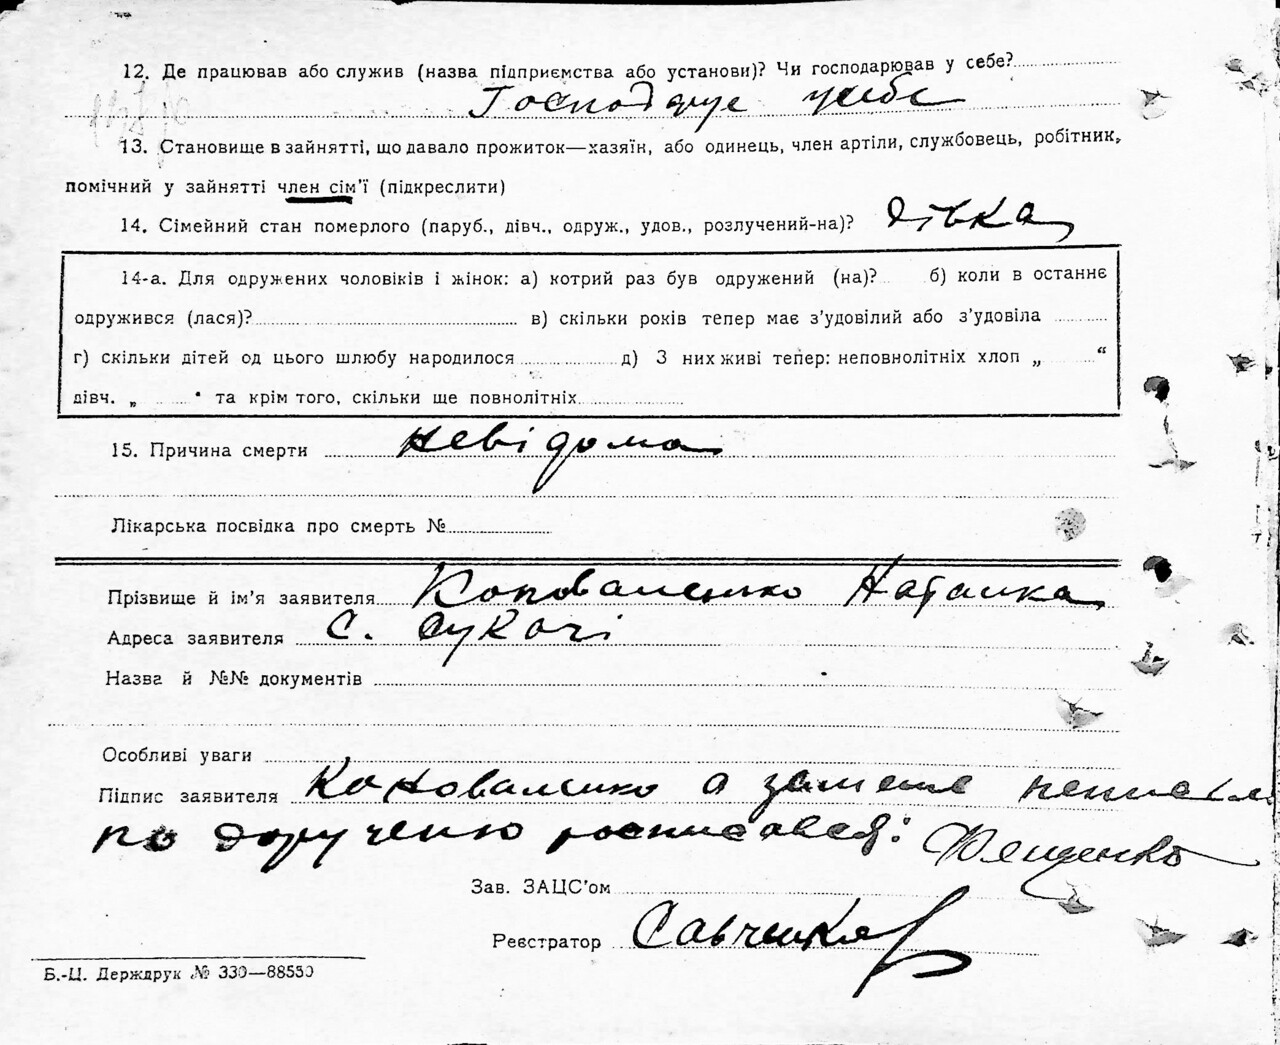 12. Де працював або служив (назва підприємства або установи)? Чи господарював у себе?
Господарує у себе
13. Становище в зайнятті, що давало прожиток—хазяїн, або одинець, член артіли, службовець, робітник,
помічний у зайнятті член сім'ї (підкреслити)
14. Сімейний стан померлого (паруб., дівч., одруж., удов., розлучений-на)? дівка
14-а. Для одружених чоловіків і жінок: а) котрий раз був одружений (на)? б) коли в останнє
одружився (лася)? в) скільки років тепер має з'удовілий або з'удовіла
г) скільки дітей од цього шлюбу народилося д) З них живі тепер: неповнолітніх хлоп „ “
дівч. „ “ та крім того, скільки ще повнолітніх
15. Причина смерти невідома
Лікарська посвідка про смерть №
Прізвище й ім'я заявителя Коноваленко Наталка
Адреса заявителя С. Сукачі
Назва й №№ документів
Особливі уваги
Підпис заявителя Коноваленко а за
по дорученю росписався: Ющенко
Зав. ЗАЦС'ом
Реєстратор
Б.-Ц. Держдрук № 330—88550